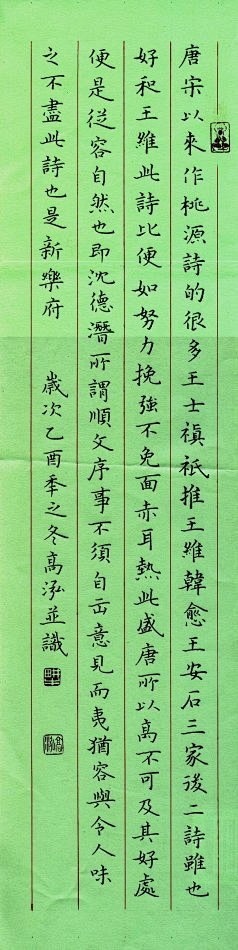 唐宋以來作桃源詩的很多王士禛衹推王維韓愈王安石三家後二詩雖也
好和王維此詩比便如努力挽強不免面赤耳熱此盛唐所以高不可及其好處
便是從容自然也即沈德潛所謂順文序事不須自出意見而夷猶容與令人味
之不盡此詩也是新樂府 歲次乙酉年之冬高泓並識